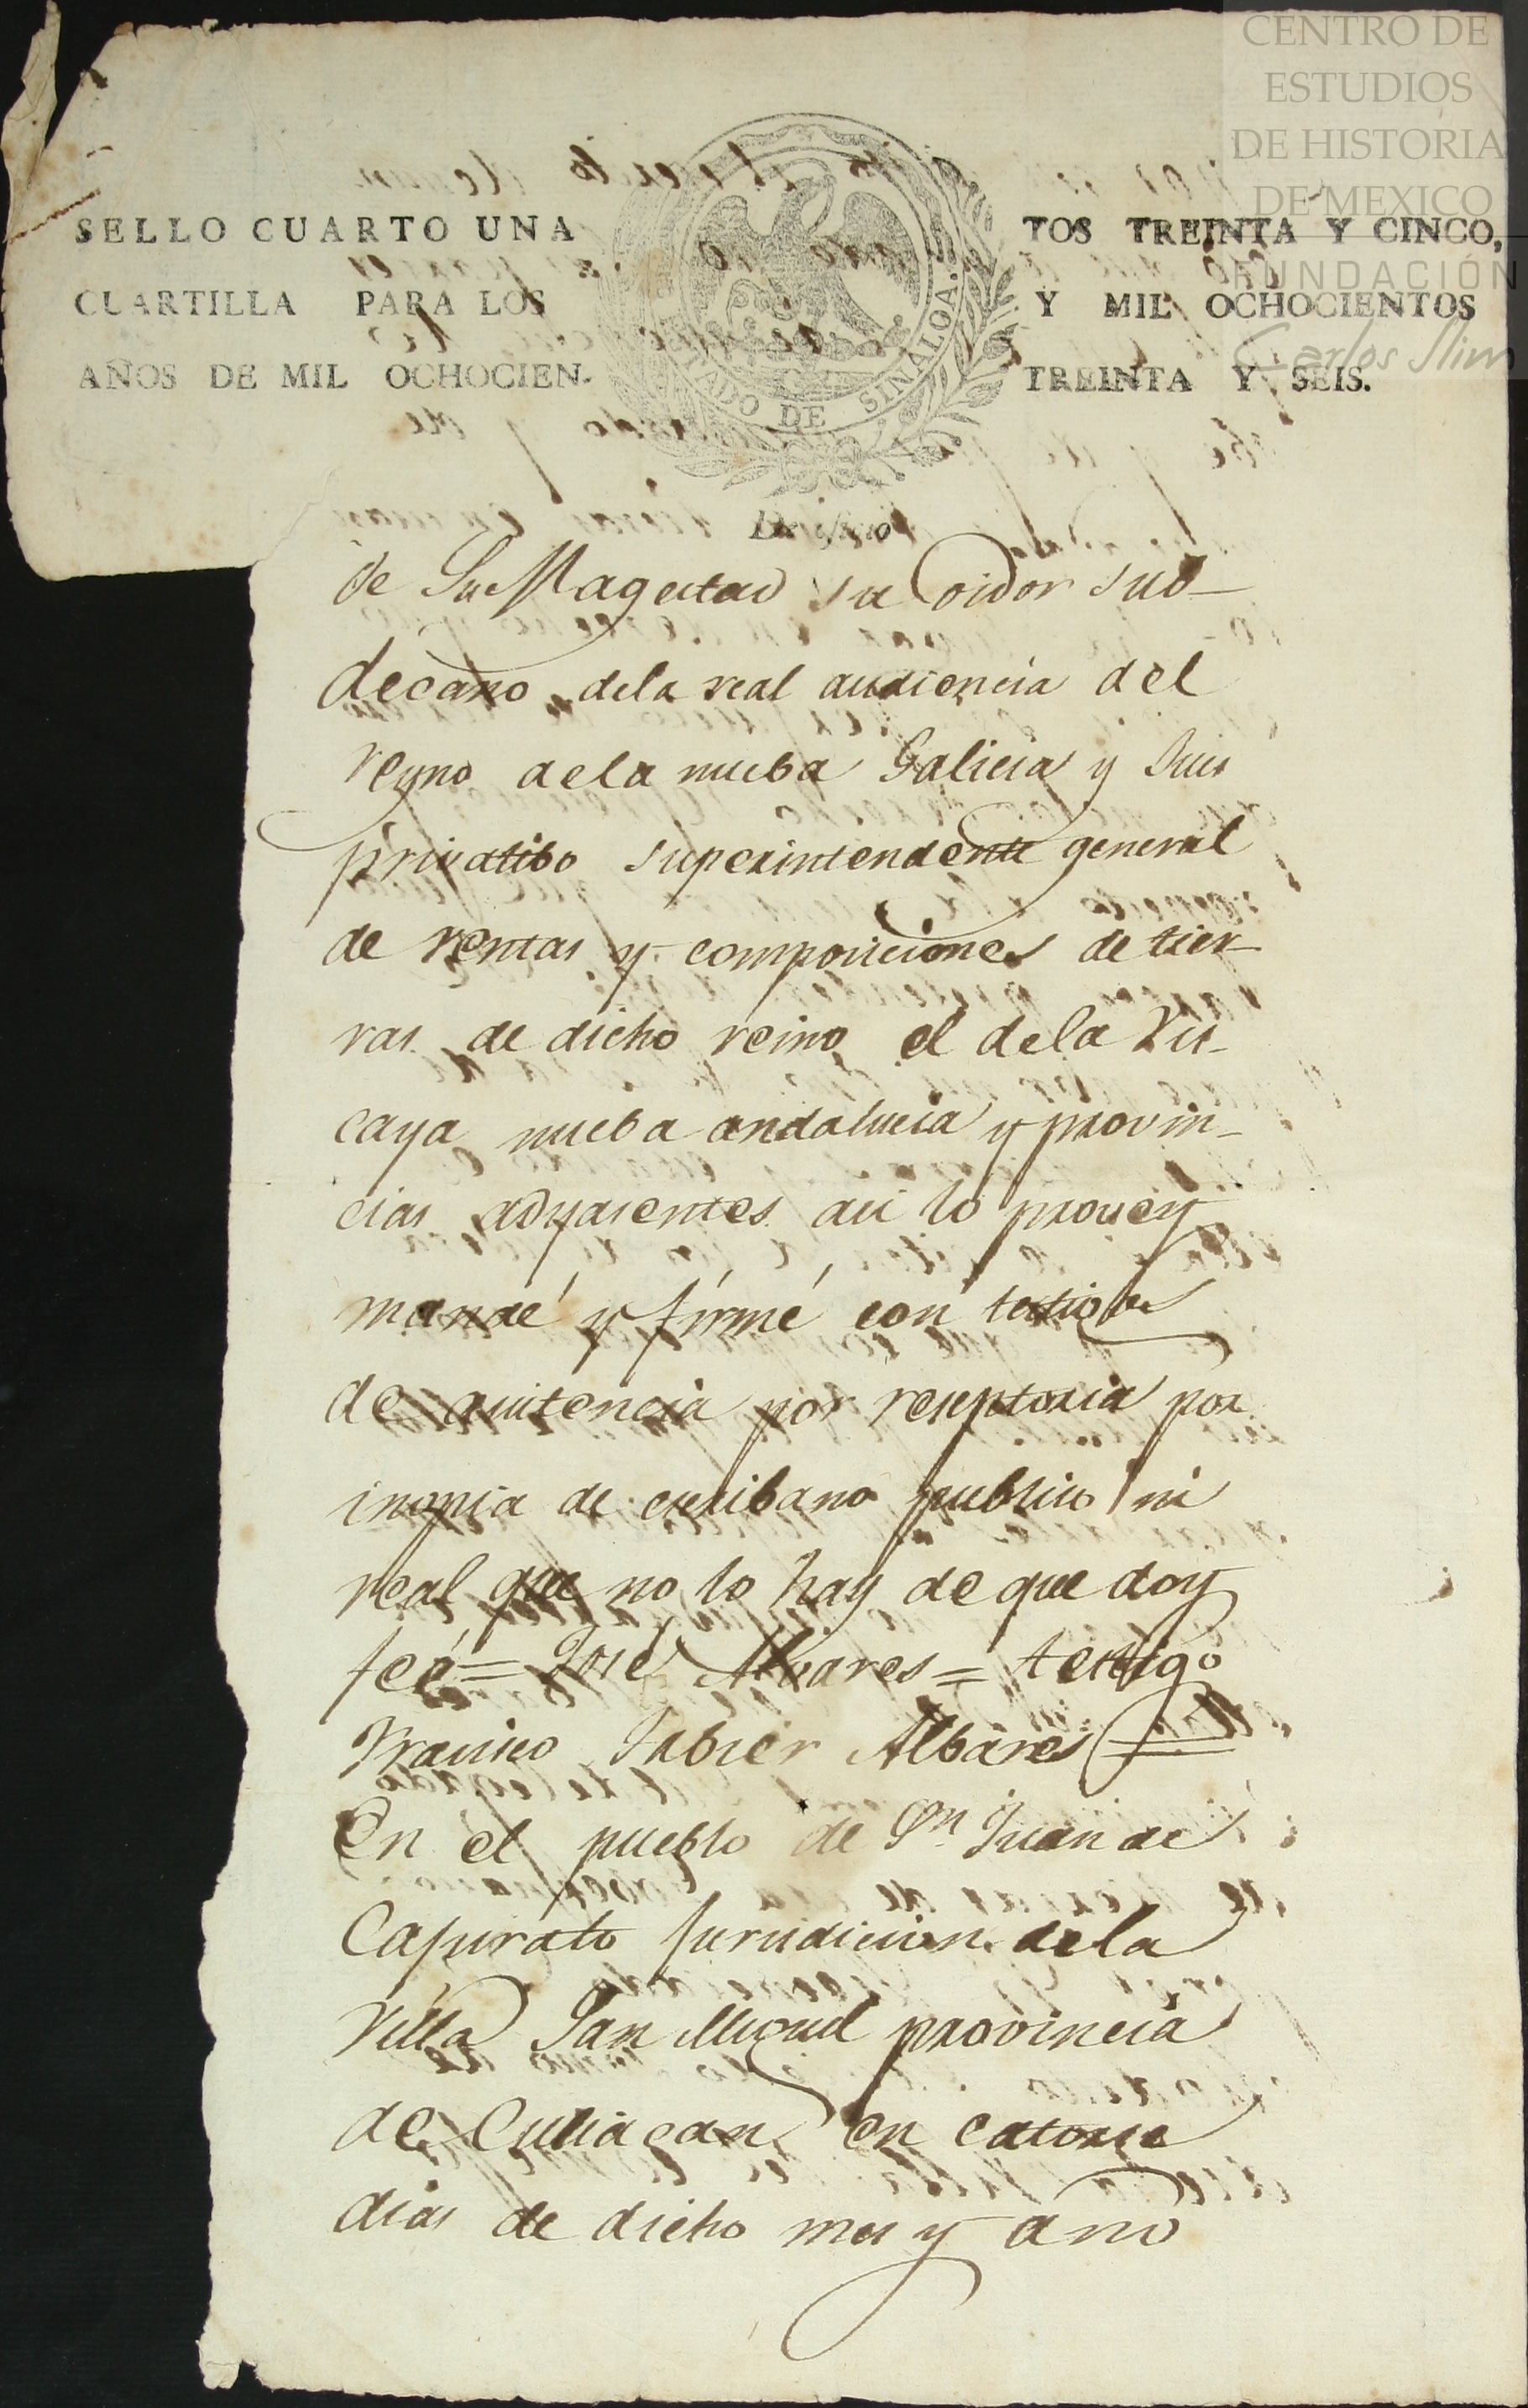 CENTRO DE
ESTUDIOS
DE HISTORIA
DE MEXICO
FUNDACIÓN
Carlos Slim
SELLO CUARTO UNA
CUARTILLA PARA LOS
AÑOS DE MIL OCHOCIEN-
ESTADO DE SINALOA.
TOS TREINTA Y CINCO,
Y MIL OCHOCIENTOS
TREINTA Y SEIS.
De oficio
de Su Magestad su oidor sub-
decano dela real audiencia del
reyno dela nueba Galicia y Jues
pribatibo superintendente general
de ventas y composiciones de tier-
ras de dicho reino el dela Vis-
caya nueba andalucia y provin-
cias adyasentes asi lo provey
mandé y firmé con testigos
de asistencia por reseptoria por
inopia de escribano publico ni
real que no lo hay de que doy
feé = José Albares = testigo
Fransisco Jabier Albares =
En el pueblo de Sn. Juan de
Capirato Jurisdicion dela
Villa San Miguel provincia
de Culiacan en catorse
dias de dicho mes y año